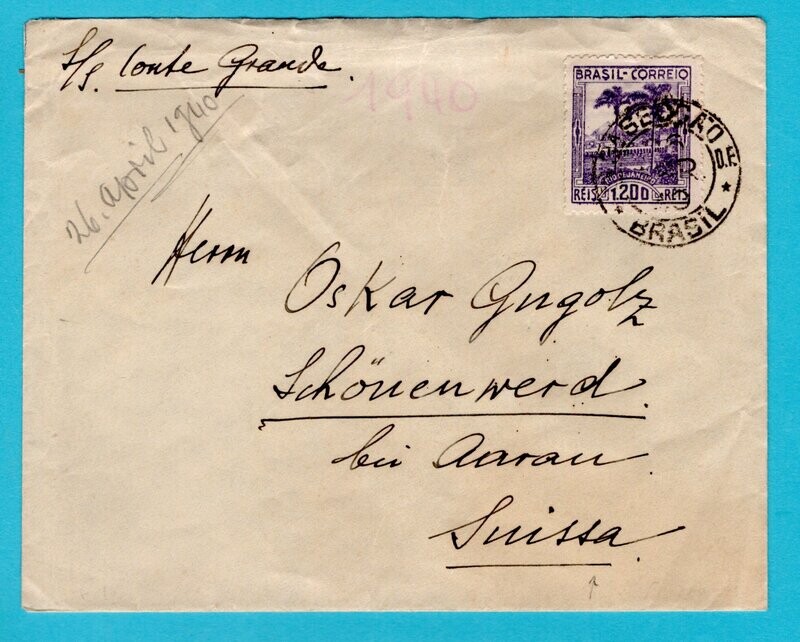 S/S. Conte Grande.
1940
26. April 1940
BRASIL-CORREIO
RIO DE JANEIRO
REIS 1.200 REIS
SECÇÃO
D.F.
BRASIL
Herrn
Oskar Gugolz
Schönenwerd.
bei Aarau.
Suissa.